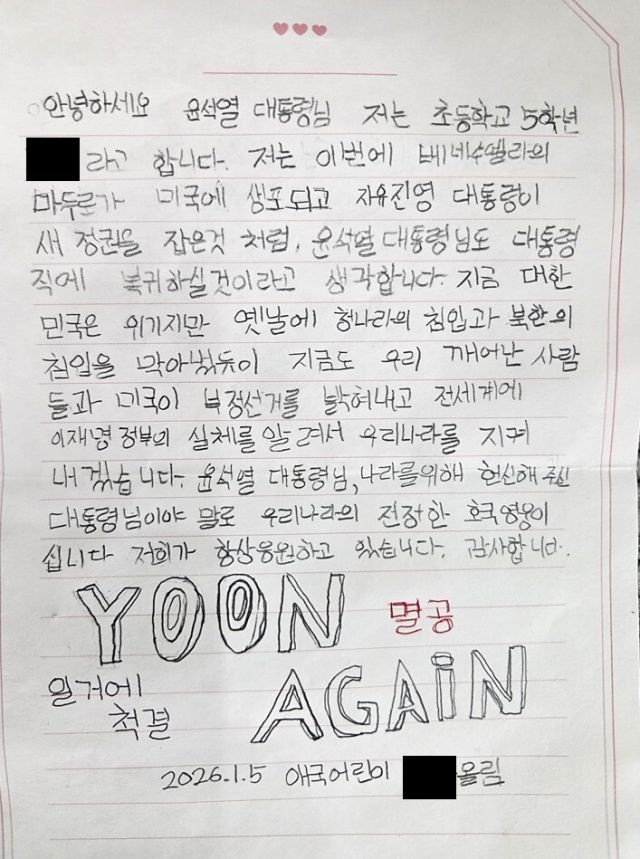 안녕하세요 윤석열 대통령님 저는 초등학교 5학년
라고 합니다. 저는 이번에 베네수엘라의
마두로가 미국에 생포되고 자유진영 대통령이
새 정권을 잡은것 처럼, 윤석열대통령님도 대통령
직에 복귀하실것이라고 생각합니다. 지금 대한
민국은 위기지만 옛날에 청나라의 침입과 북한의
침입을 막아냈듯이 지금도 우리 깨어난 사람
들과 미국이 부정선거를 밝혀내고 전세계에
이재명 정부의 실체를 알려서 우리나라를 지켜
내겠습니다. 윤석열 대통령님, 나라를위해 헌신해 주신
대통령님이야 말로 우리나라의 진정한 호국영웅이
십니다 저희가 항상응원하고 있습니다. 감사합니다.
YOON 멸공
일거에
척결
AGAiN
2026.1.5 애국어린이 올림